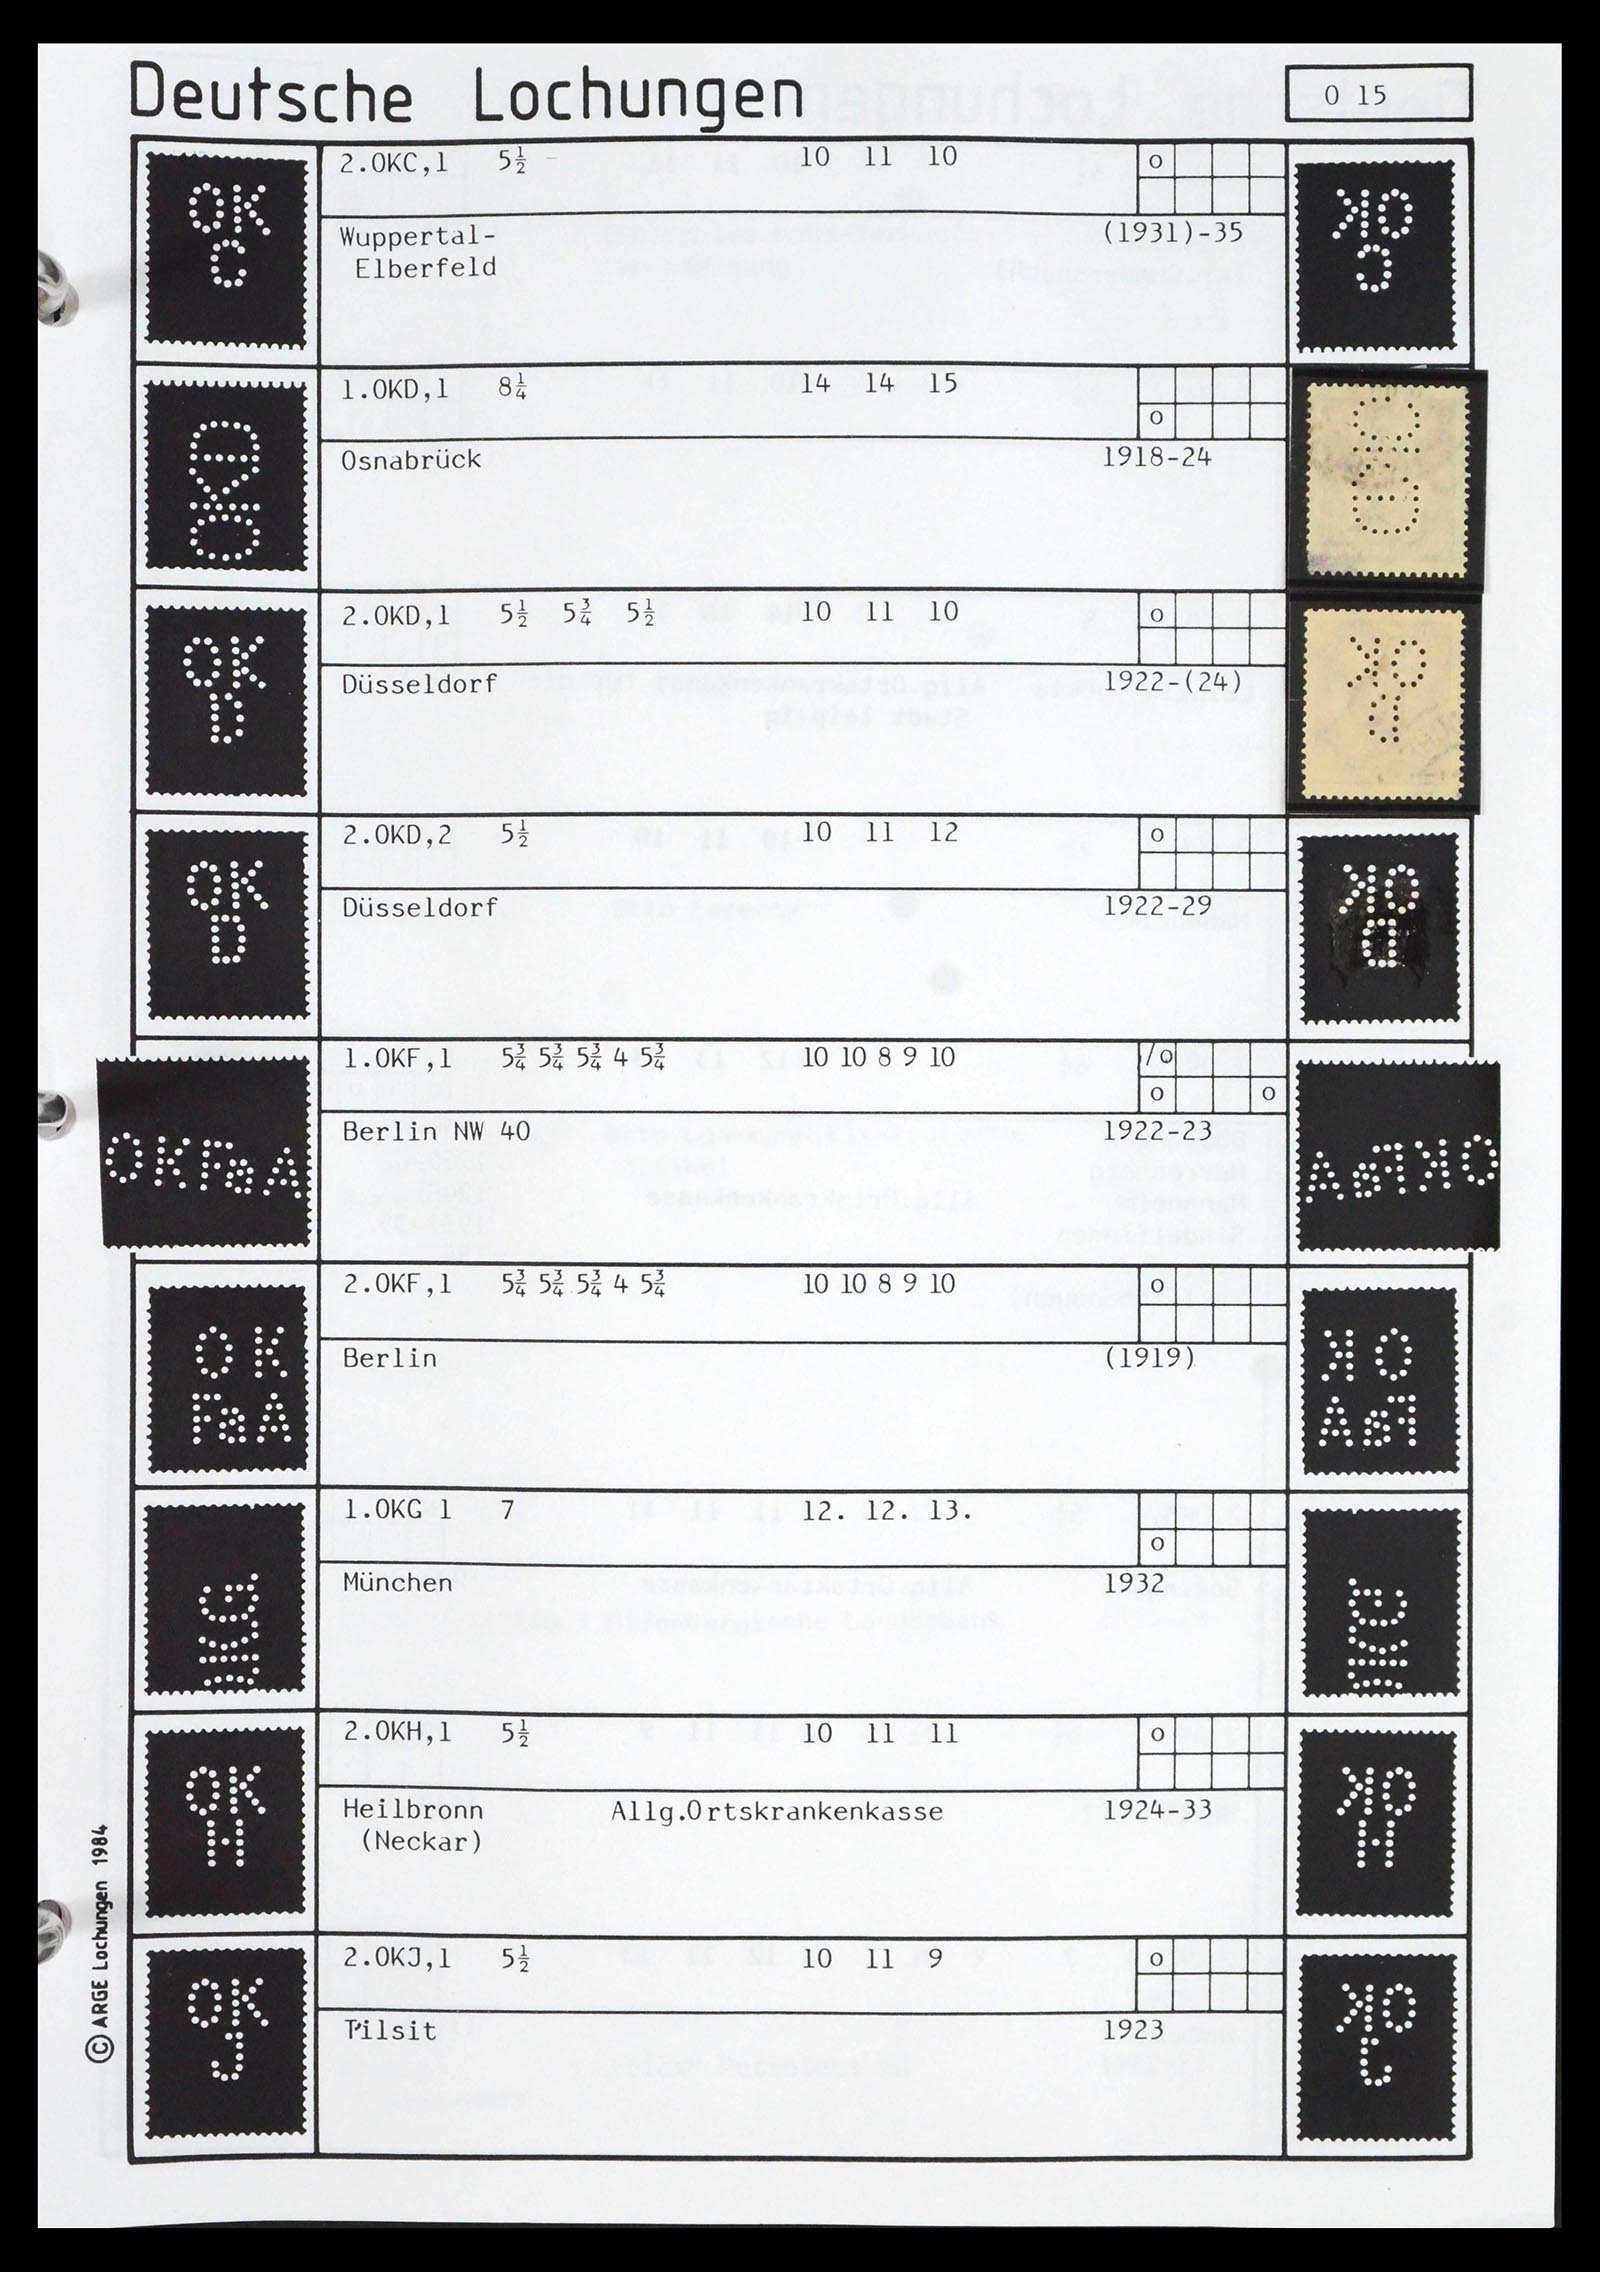 Deutsche Lochungen
O 15
OK
C
2.OKC,1 5½ 10 11 10 o
Wuppertal- (1931)-35
Elberfeld
OK
C
OKD
1.OKD,1 8¼ 14 14 15
o
Osnabrück 1918-24
OKD
OK
D
2.OKD,1 5½ 5¾ 5½ 10 11 10 o
Düsseldorf 1922-(24)
OK
D
OK
D
2.OKD,2 5½ 10 11 12 o
Düsseldorf 1922-29
OK
D
OKFaA
1.OKF,1 5¾ 5¾ 5¾ 4 5¾ 10 10 8 9 10 /o
o o
Berlin NW 40 1922-23
OKFaA
OK
FaA
2.OKF,1 5¾ 5¾ 5¾ 4 5¾ 10 10 8 9 10 o
Berlin (1919)
OK
FaA
1.OKG 1 7 12. 12. 13.
o
München 1932
OK
H
2.OKH,1 5½ 10 11 11 o
Heilbronn Allg.Ortskrankenkasse 1924-33
(Neckar)
OK
H
OK
J
2.OKJ,1 5½ 10 11 9 o
Tilsit 1923
OK
J
© ARGE Lochungen 1984